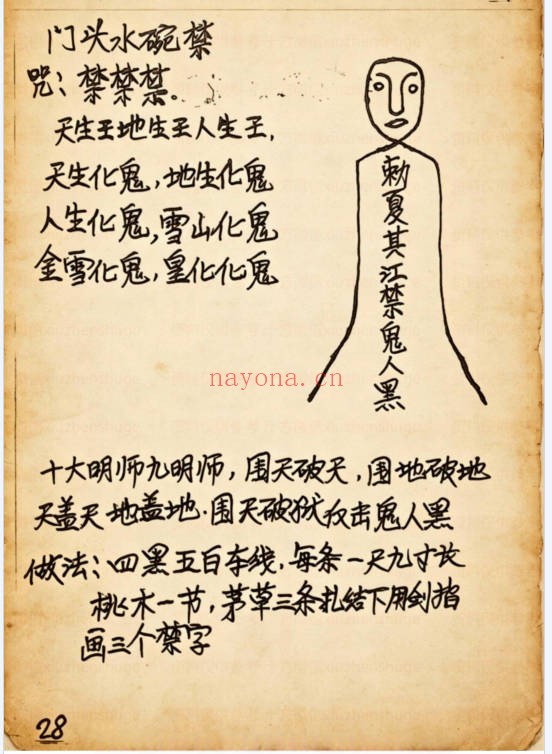 门头水碗禁
咒：禁禁禁。
天生王地生王人生王，
天生化鬼，地生化鬼
人生化鬼，雪山化鬼
金雪化鬼，皇化化鬼
勅夏其江禁鬼人黑
nayona.cn
十大明师九明师，围天破天，围地破地
天盖天地盖地．围天破狱反击鬼人黑
做法：四黑五白车线，每条一尺九寸长
桃木一节，茅草三条扎结下用剑指
画三个禁字
28